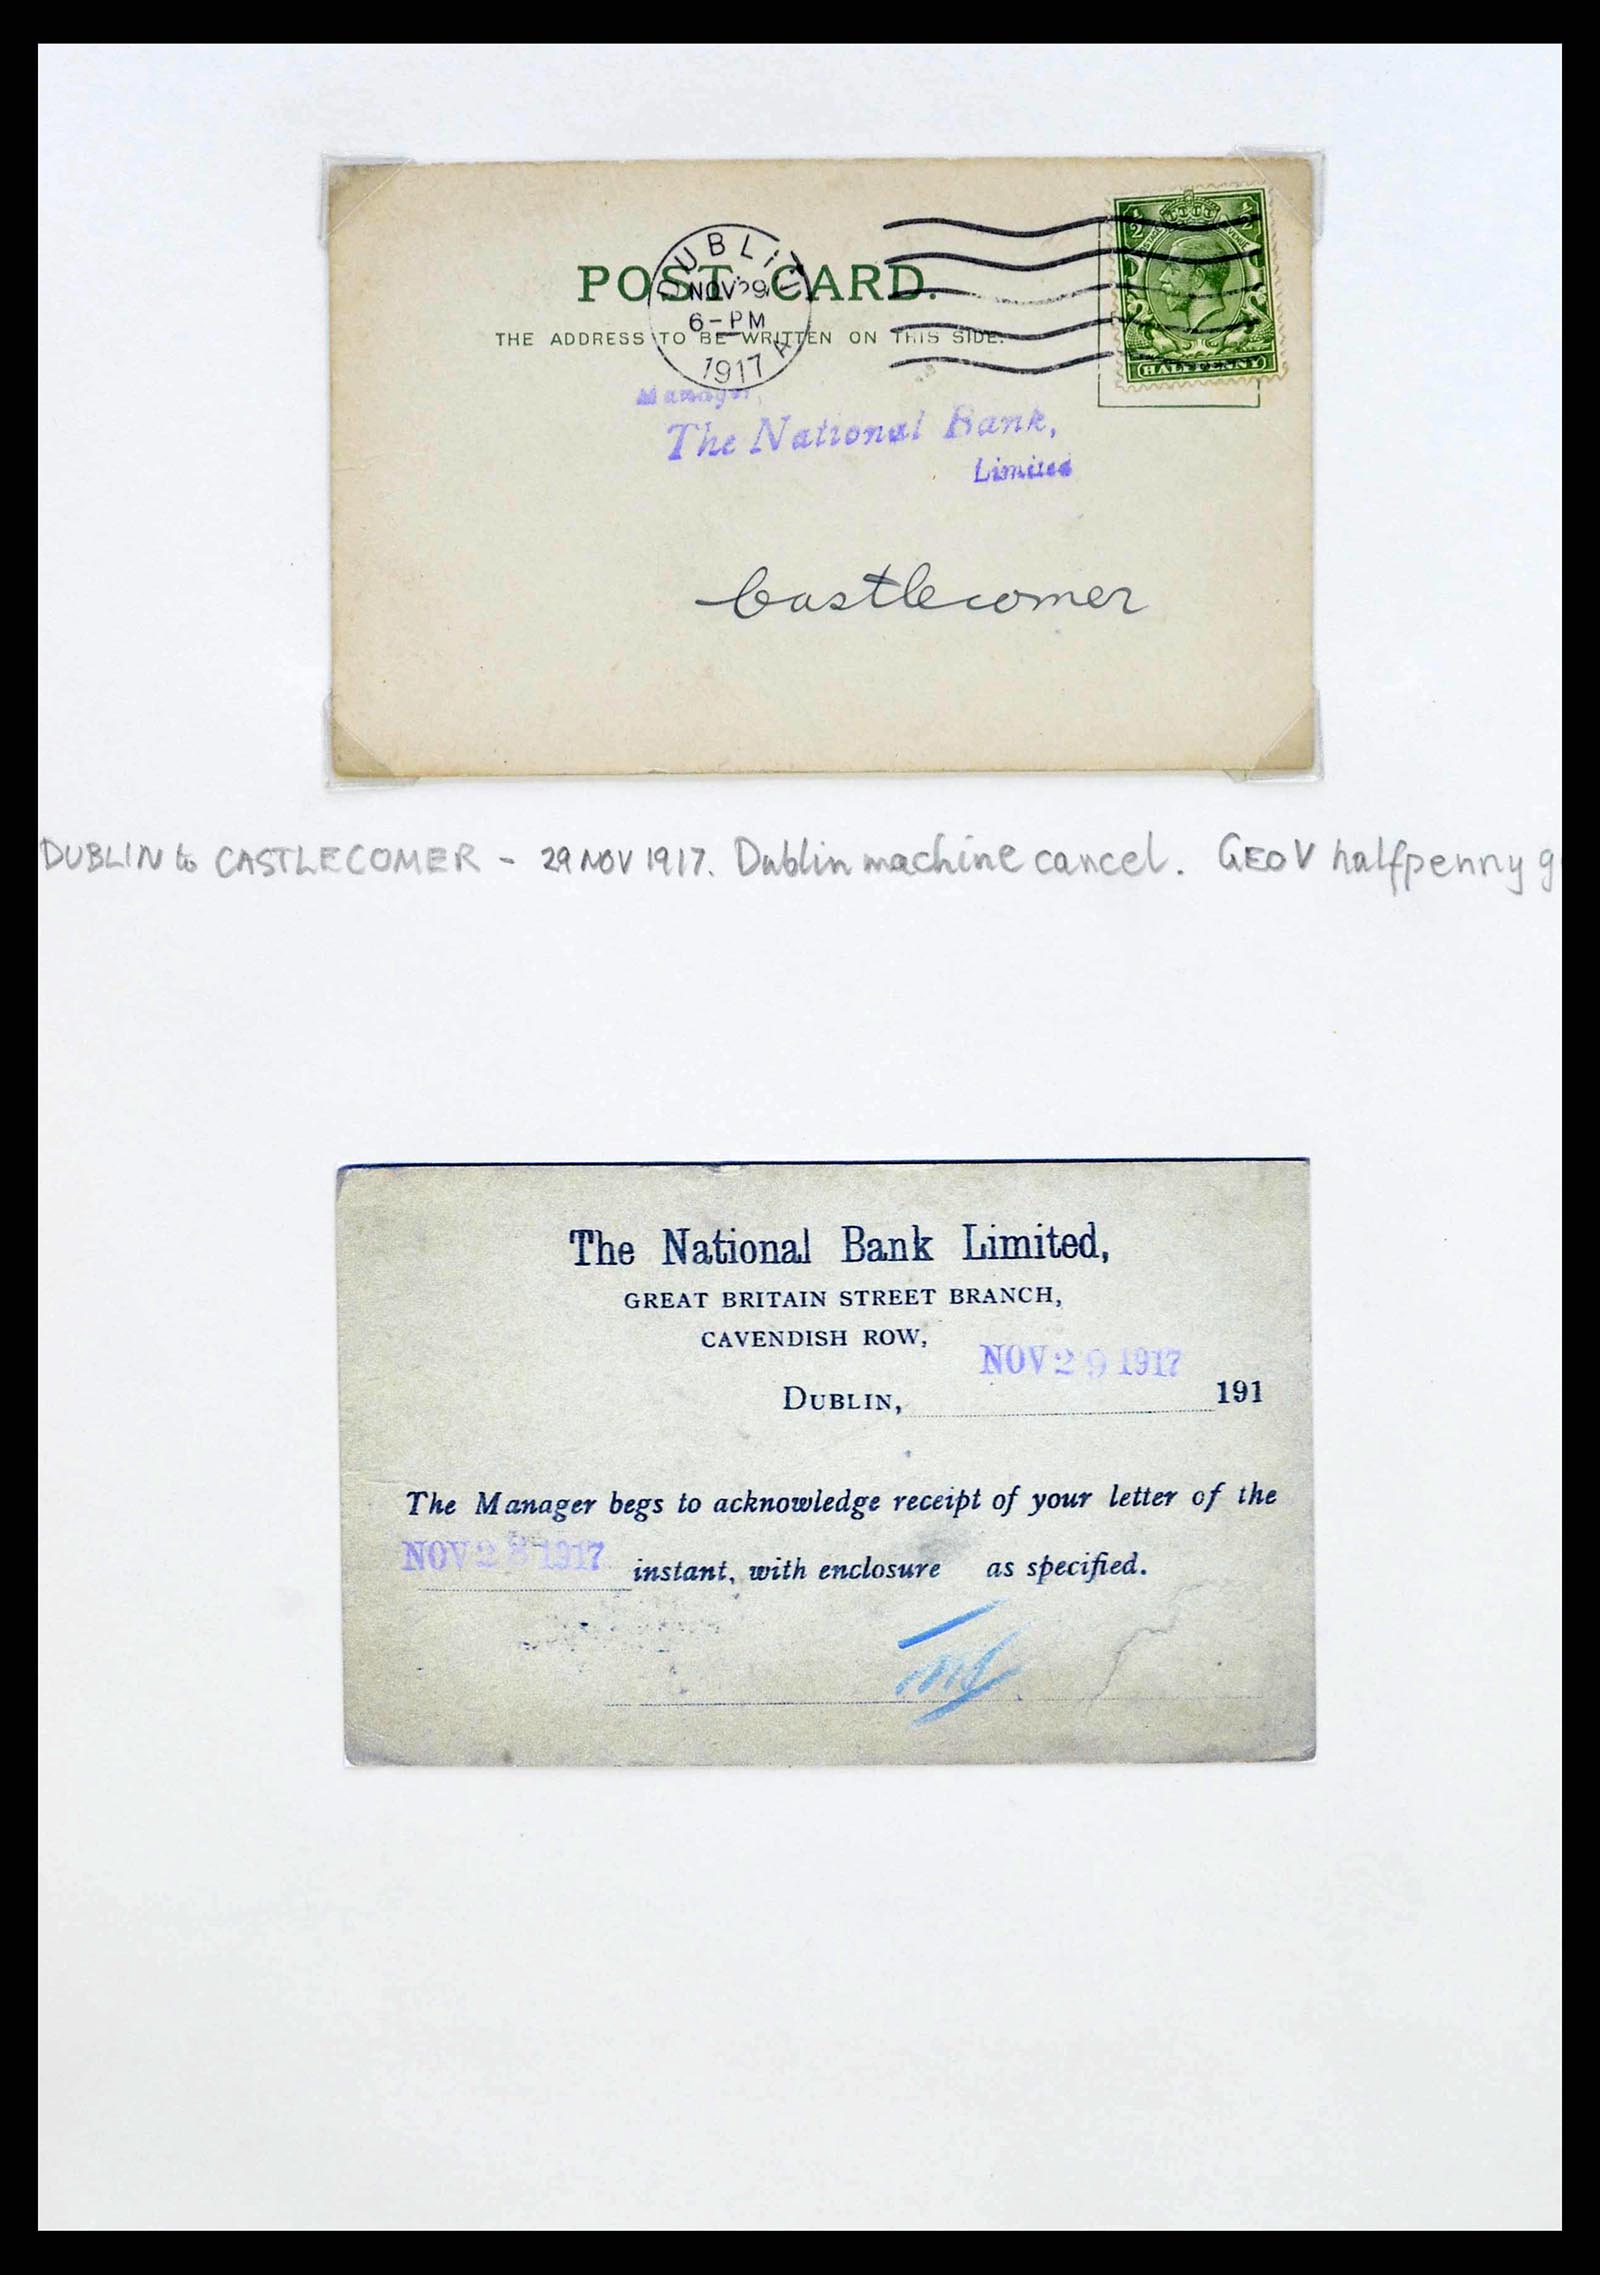 POST CARD.
THE ADDRESS TO BE WRITTEN ON THIS SIDE.
DUBLIN
NOV 29
6-PM
1917
A
1/2 1/2
HALFPENNY
Manager,
The National Bank,
Limited
Castlecomer
DUBLIN to CASTLECOMER - 29 NOV 1917. Dublin machine cancel. GEO V halfpenny g
The National Bank Limited,
GREAT BRITAIN STREET BRANCH,
CAVENDISH ROW,
NOV 29 1917
DUBLIN, 191
The Manager begs to acknowledge receipt of your letter of the
NOV 28 1917 instant, with enclosure as specified.